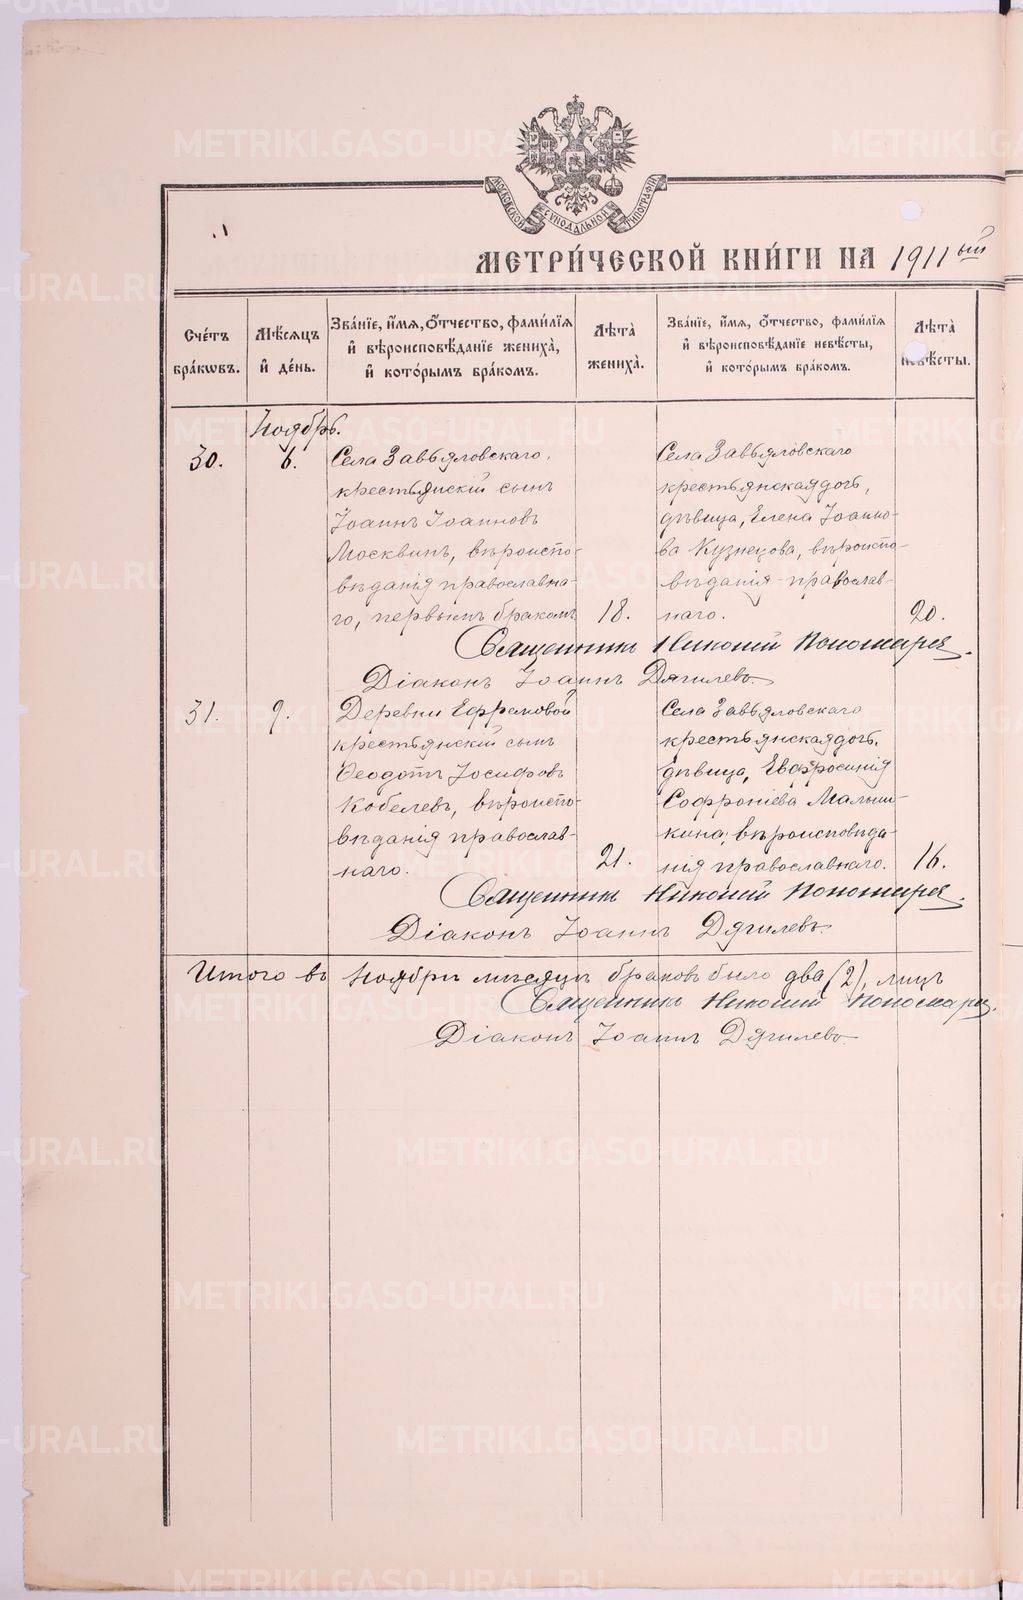 МОСКОВСКОЙ СѴНОДАЛЬНОЙ ТИПОГРАФІИ
МЕТРИ́ЧЕСКОЙ КНИ́ГИ НА 1911ый
Сче́тъ бра́кѡвъ.
Мѣ́сяцъ и҆ де́нь.
Зва́нїе, и҆́мя, о҆́тчество, фами́лїя и҆ вѣроисповѣ́данїе жениха̀, и҆ кото́рымъ бра́комъ.
Лѣ́та̀ жениха̀.
Зва́нїе, и҆́мя, о҆́тчество, фами́лїя и҆ вѣроисповѣ́данїе невѣ́сты, и҆ кото́рымъ бра́комъ.
Лѣ́та̀ невѣ́сты.
Ноябрь.
30. 6. Села Завьяловскаго
крестьянскій сынъ
Іоаннъ Іоанновъ
Москвинъ, вѣроиспо-
вѣданія православна-
го, первымъ бракомъ 18.
Села Завьяловскаго
крестьянская дочь,
дѣвица, Елена Іоанно-
ва Кузнецова, вѣроиспо-
вѣданія православ-
наго. 20.
Священникъ Николай Пономарев.
Діаконъ Іоаннъ Дягилевъ
31. 9. Деревни Ефремовой
крестьянскій сынъ
Ѳеодотъ Іосифовъ
Кобелевъ, вѣроиспо-
вѣданія православ-
наго. 21.
Села Завьяловскаго
крестьянская дочь,
дѣвица, Евфросинія
Софроніева Малыш-
кина, вѣроисповѣда-
нія православнаго. 16.
Священникъ Николай Пономарев.
Діаконъ Іоаннъ Дягилевъ
Итого въ Ноябрѣ мѣсяцѣ браковъ было два (2), лицъ
Священникъ Николай Пономарев.
Діаконъ Іоаннъ Дягилевъ
METRIKI.GASO-URAL.RU